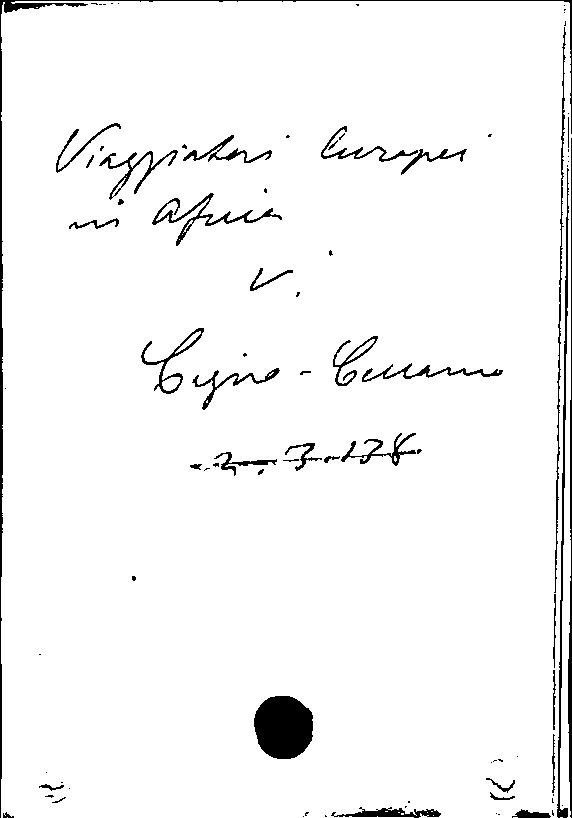 Viaggiatori Europei
in Africa
V.
Cegno - Cesareo
2.3.138